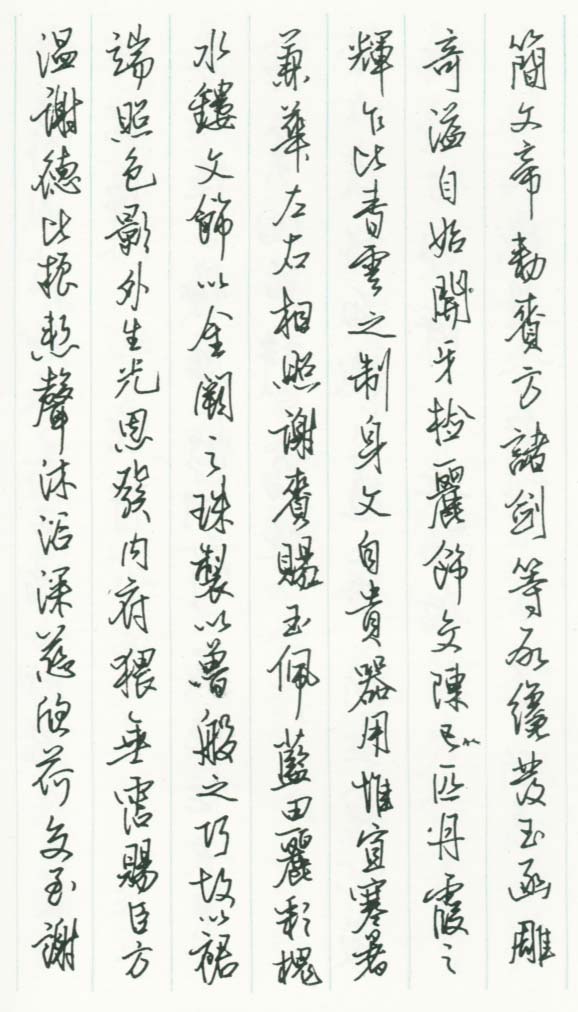 簡文帝勅賚方諸劍等啟纔發玉函雕
奇溢目始開牙檢麗飾交陳已匹丹霞之
輝乍比青雲之制身文自貴器用惟宜寒暑
兼華左右相照謝賚賜玉佩藍田麗彩槐
水鏤文飾以金闕之珠製以魯般之巧故以裾
端照色影外生光恩發内府猥垂霑賜臣方
温謝德比振慙聲沐浴深慈欣荷交至謝